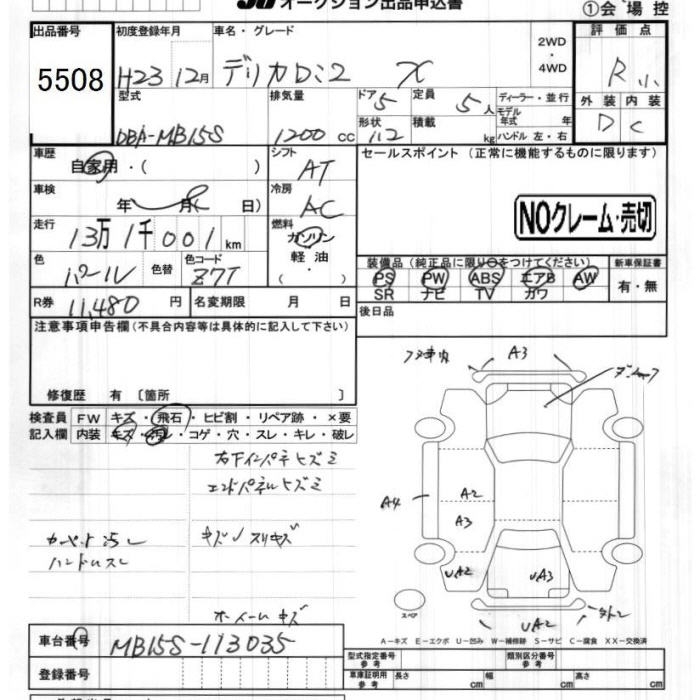 オークション出品申込書
①会場控
出品番号 初度登録年月 車名・グレード 2WD・4WD 評価点
5508 H23 12月 デリカD:2 X R小
型式 排気量 ドア 5 定員 5人 ディーラー・並行 モデル年式 年 外装 内装
DBA-MB15S 1200 cc 形状 積載 kg ハンドル 左・右 D C
車歴 自家用・( ) シフト AT セールスポイント (正常に機能するものに限ります)
車検 年 月( 日) 冷房 AC
NOクレーム・売切
走行 13万1千001km 燃料 ガソリン 軽油 ・( )
色 パール 色替 色コード Z7T
装備品 (純正品に限り○をつけてください) 新車保証書
PS PW ABS エアB AW 有・無
SR ナビ TV ガワ
R券 11,480円 名変期限 月 日 後日品
注意事項申告欄 (不具合内容等は具体的に記入して下さい)
修復歴 有 〔箇所 〕
検査員 FW キズ・飛石・ヒビ割・リペア跡・×要
記入欄 内装 キズ・汚れ・コゲ・穴・スレ・キレ・破レ
A3
右下インパネヒズミ
エンドパネルヒズミ
A4 A2
A3
カーペット汚レ キズ スリキズ
ハンドルスレ
UA2 UA3
スペア
ホイールキズ UA2
A-キズ E-エクボ U-凹み W-補修跡 S-サビ C-腐食 XX-交換済
車台番号 MB15S-113035
型式指定番号 参考 類別区分番号 参考
登録番号 車庫証明用 参考 長さ cm 幅 cm 高さ cm